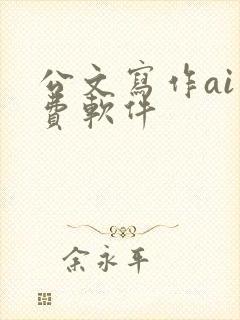 公文寫作ai
費軟件
余永平